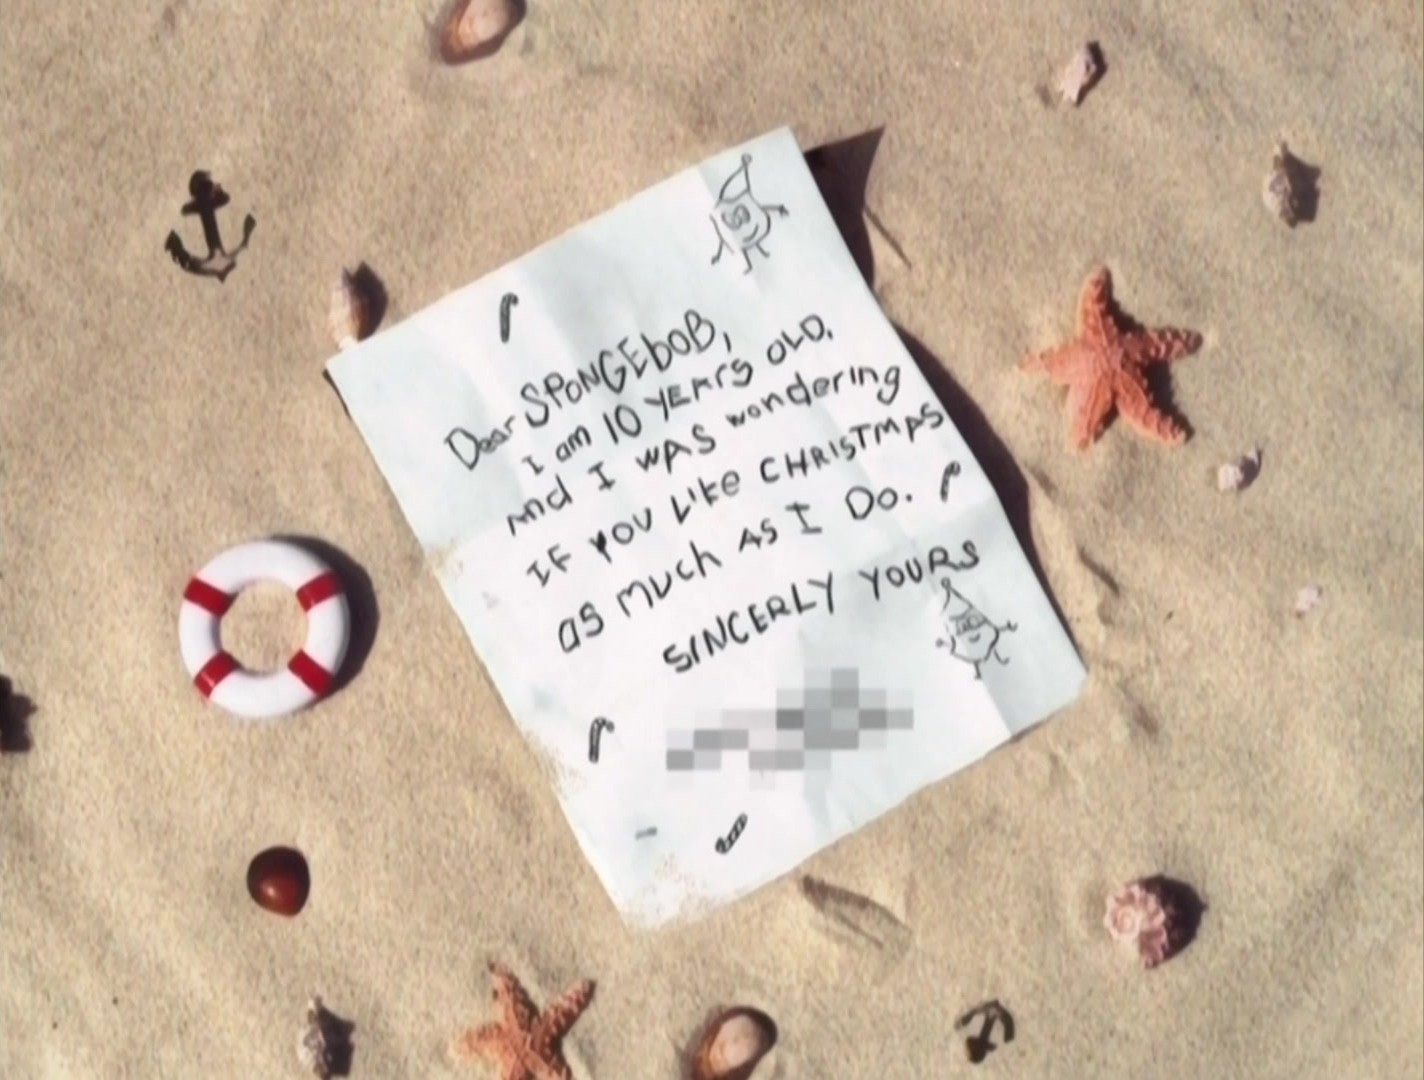 Dear SPONGEbOB,
I am 10 YEArS OLD.
And I WAS wondering
IF YOU LIKe CHRISTMAS
as MUCh AS I DO.
SINCERLY YOURS